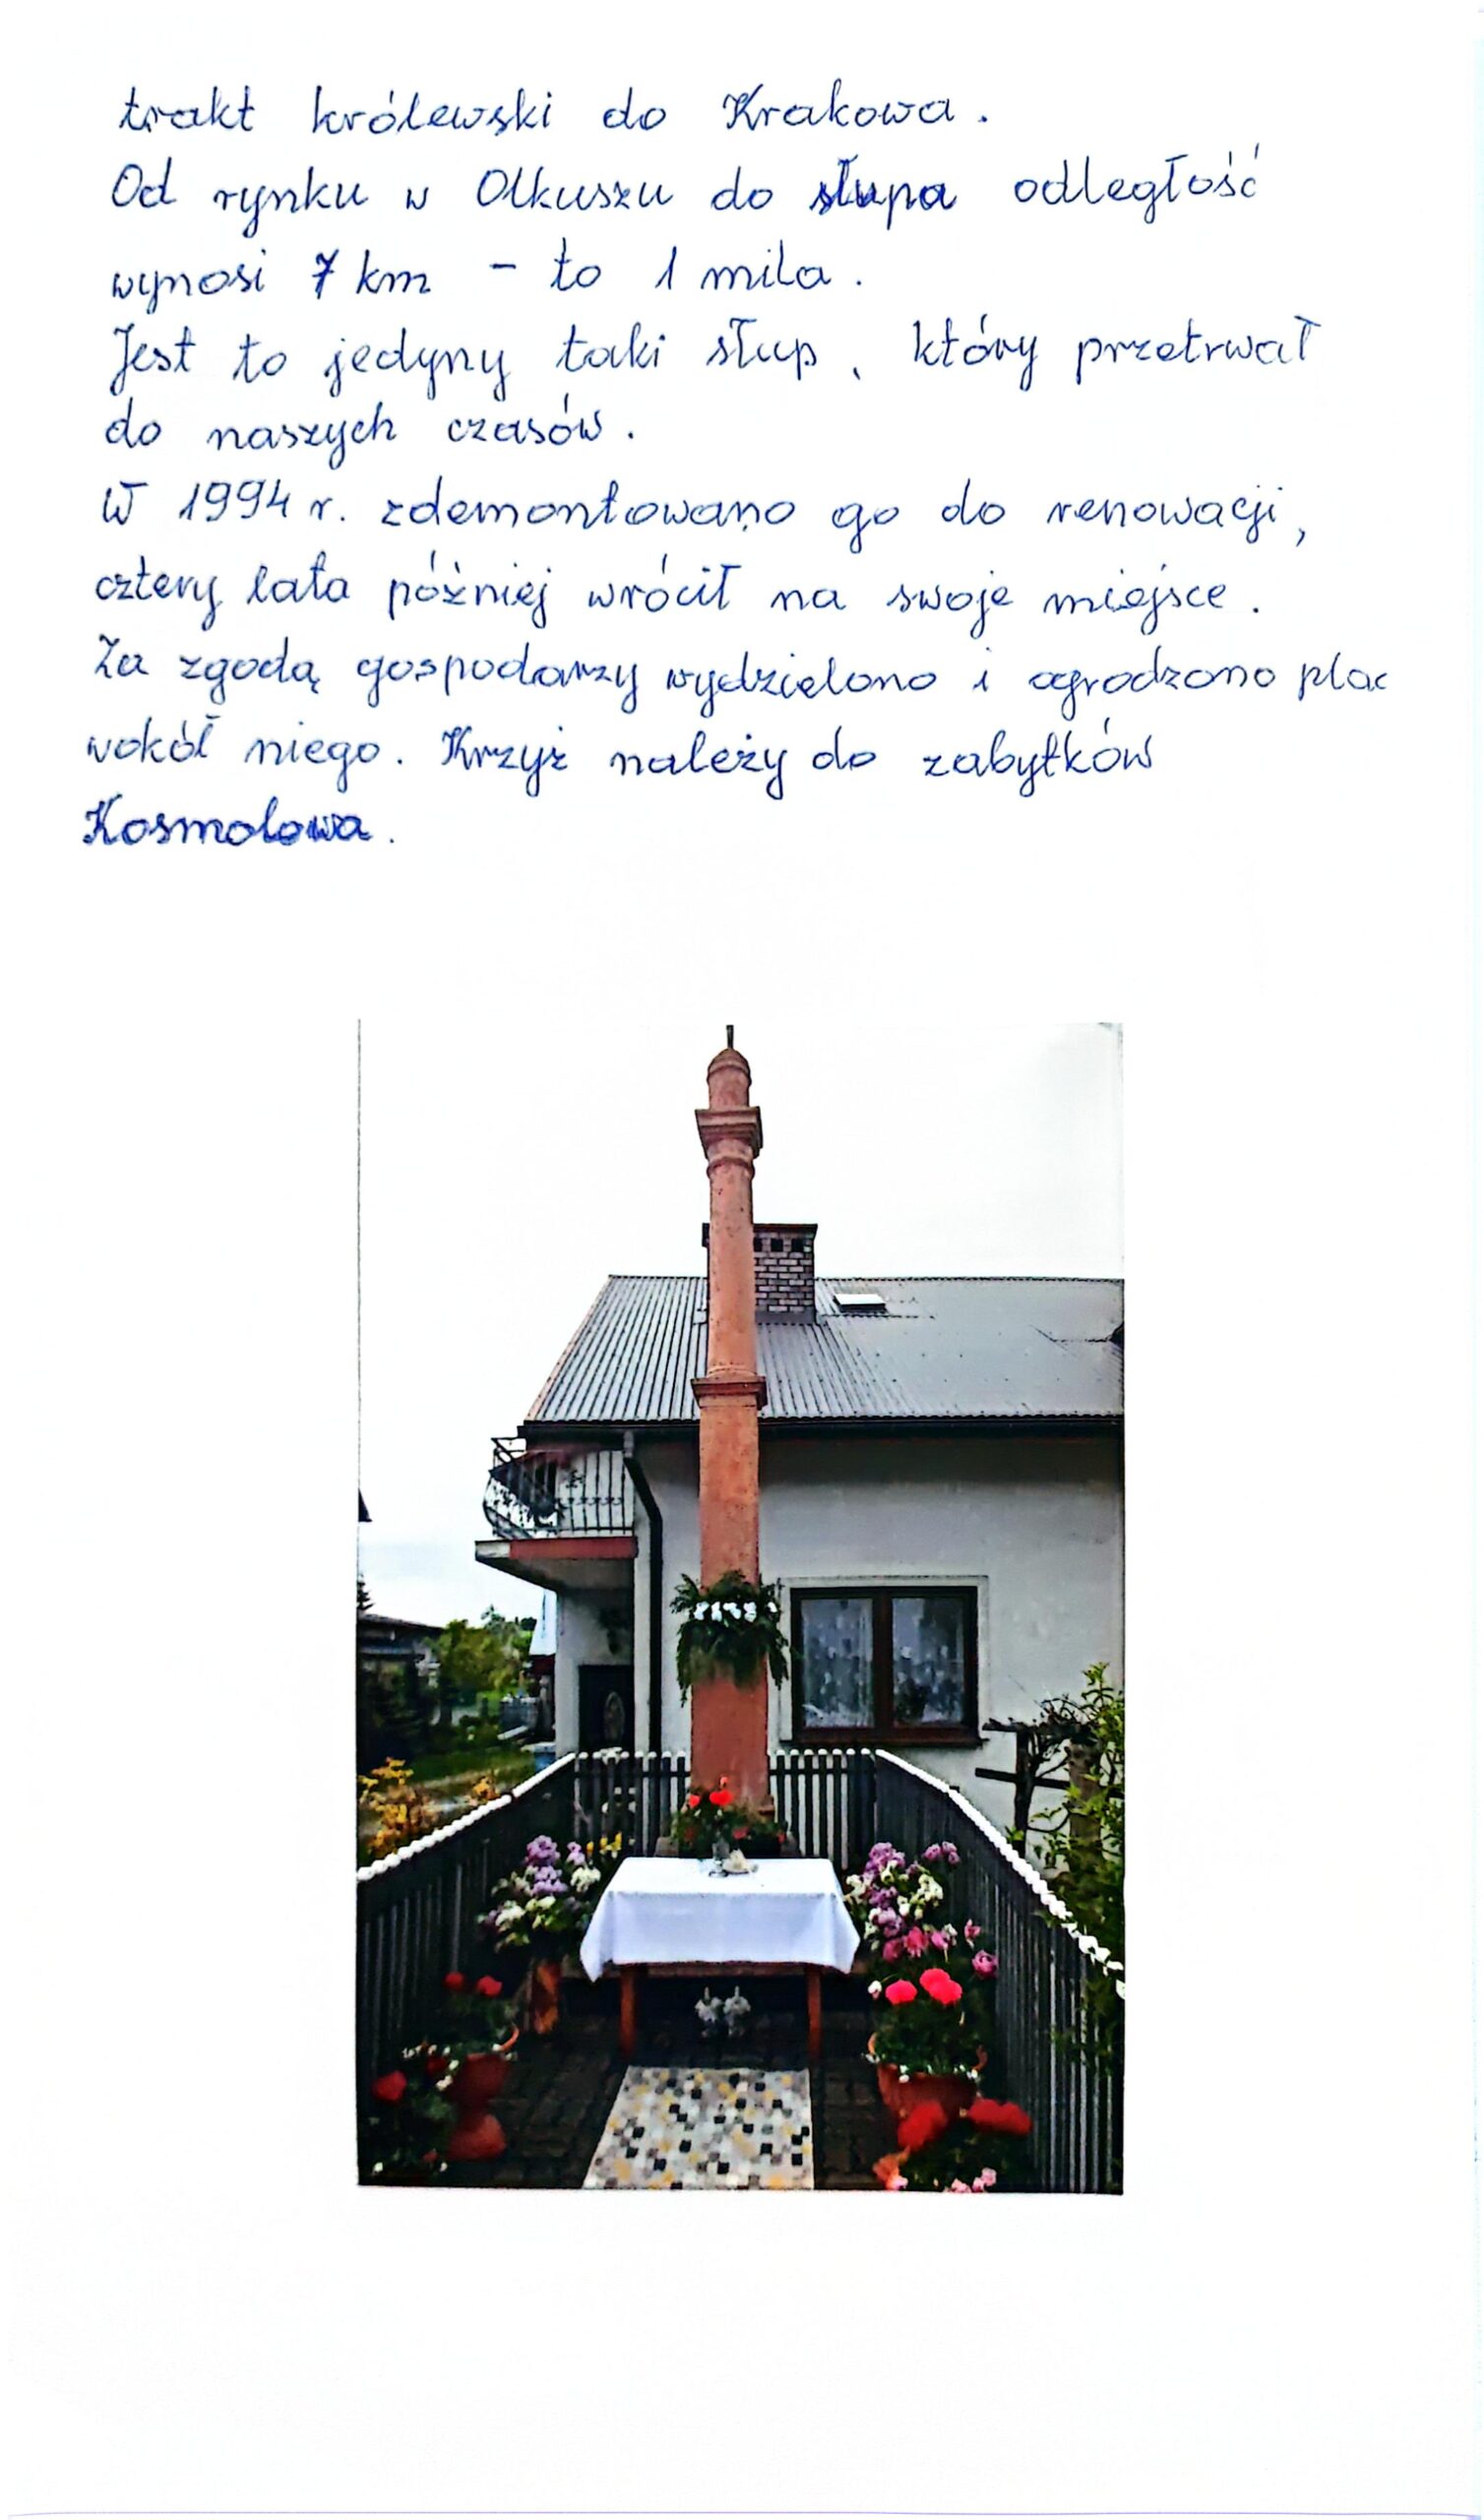 trakt królewski do Krakowa.
Od rynku w Olkuszu do słupa odległość
wynosi 7 km - to 1 mila.
Jest to jedyny taki słup, który przetrwał
do naszych czasów.
W 1994 r. zdemontowano go do renowacji,
cztery lata później wrócił na swoje miejsce.
Za zgodą gospodarzy wydzielono i ogrodzono plac
wokół niego. Krzyż należy do zabytków
Kosmolowa.